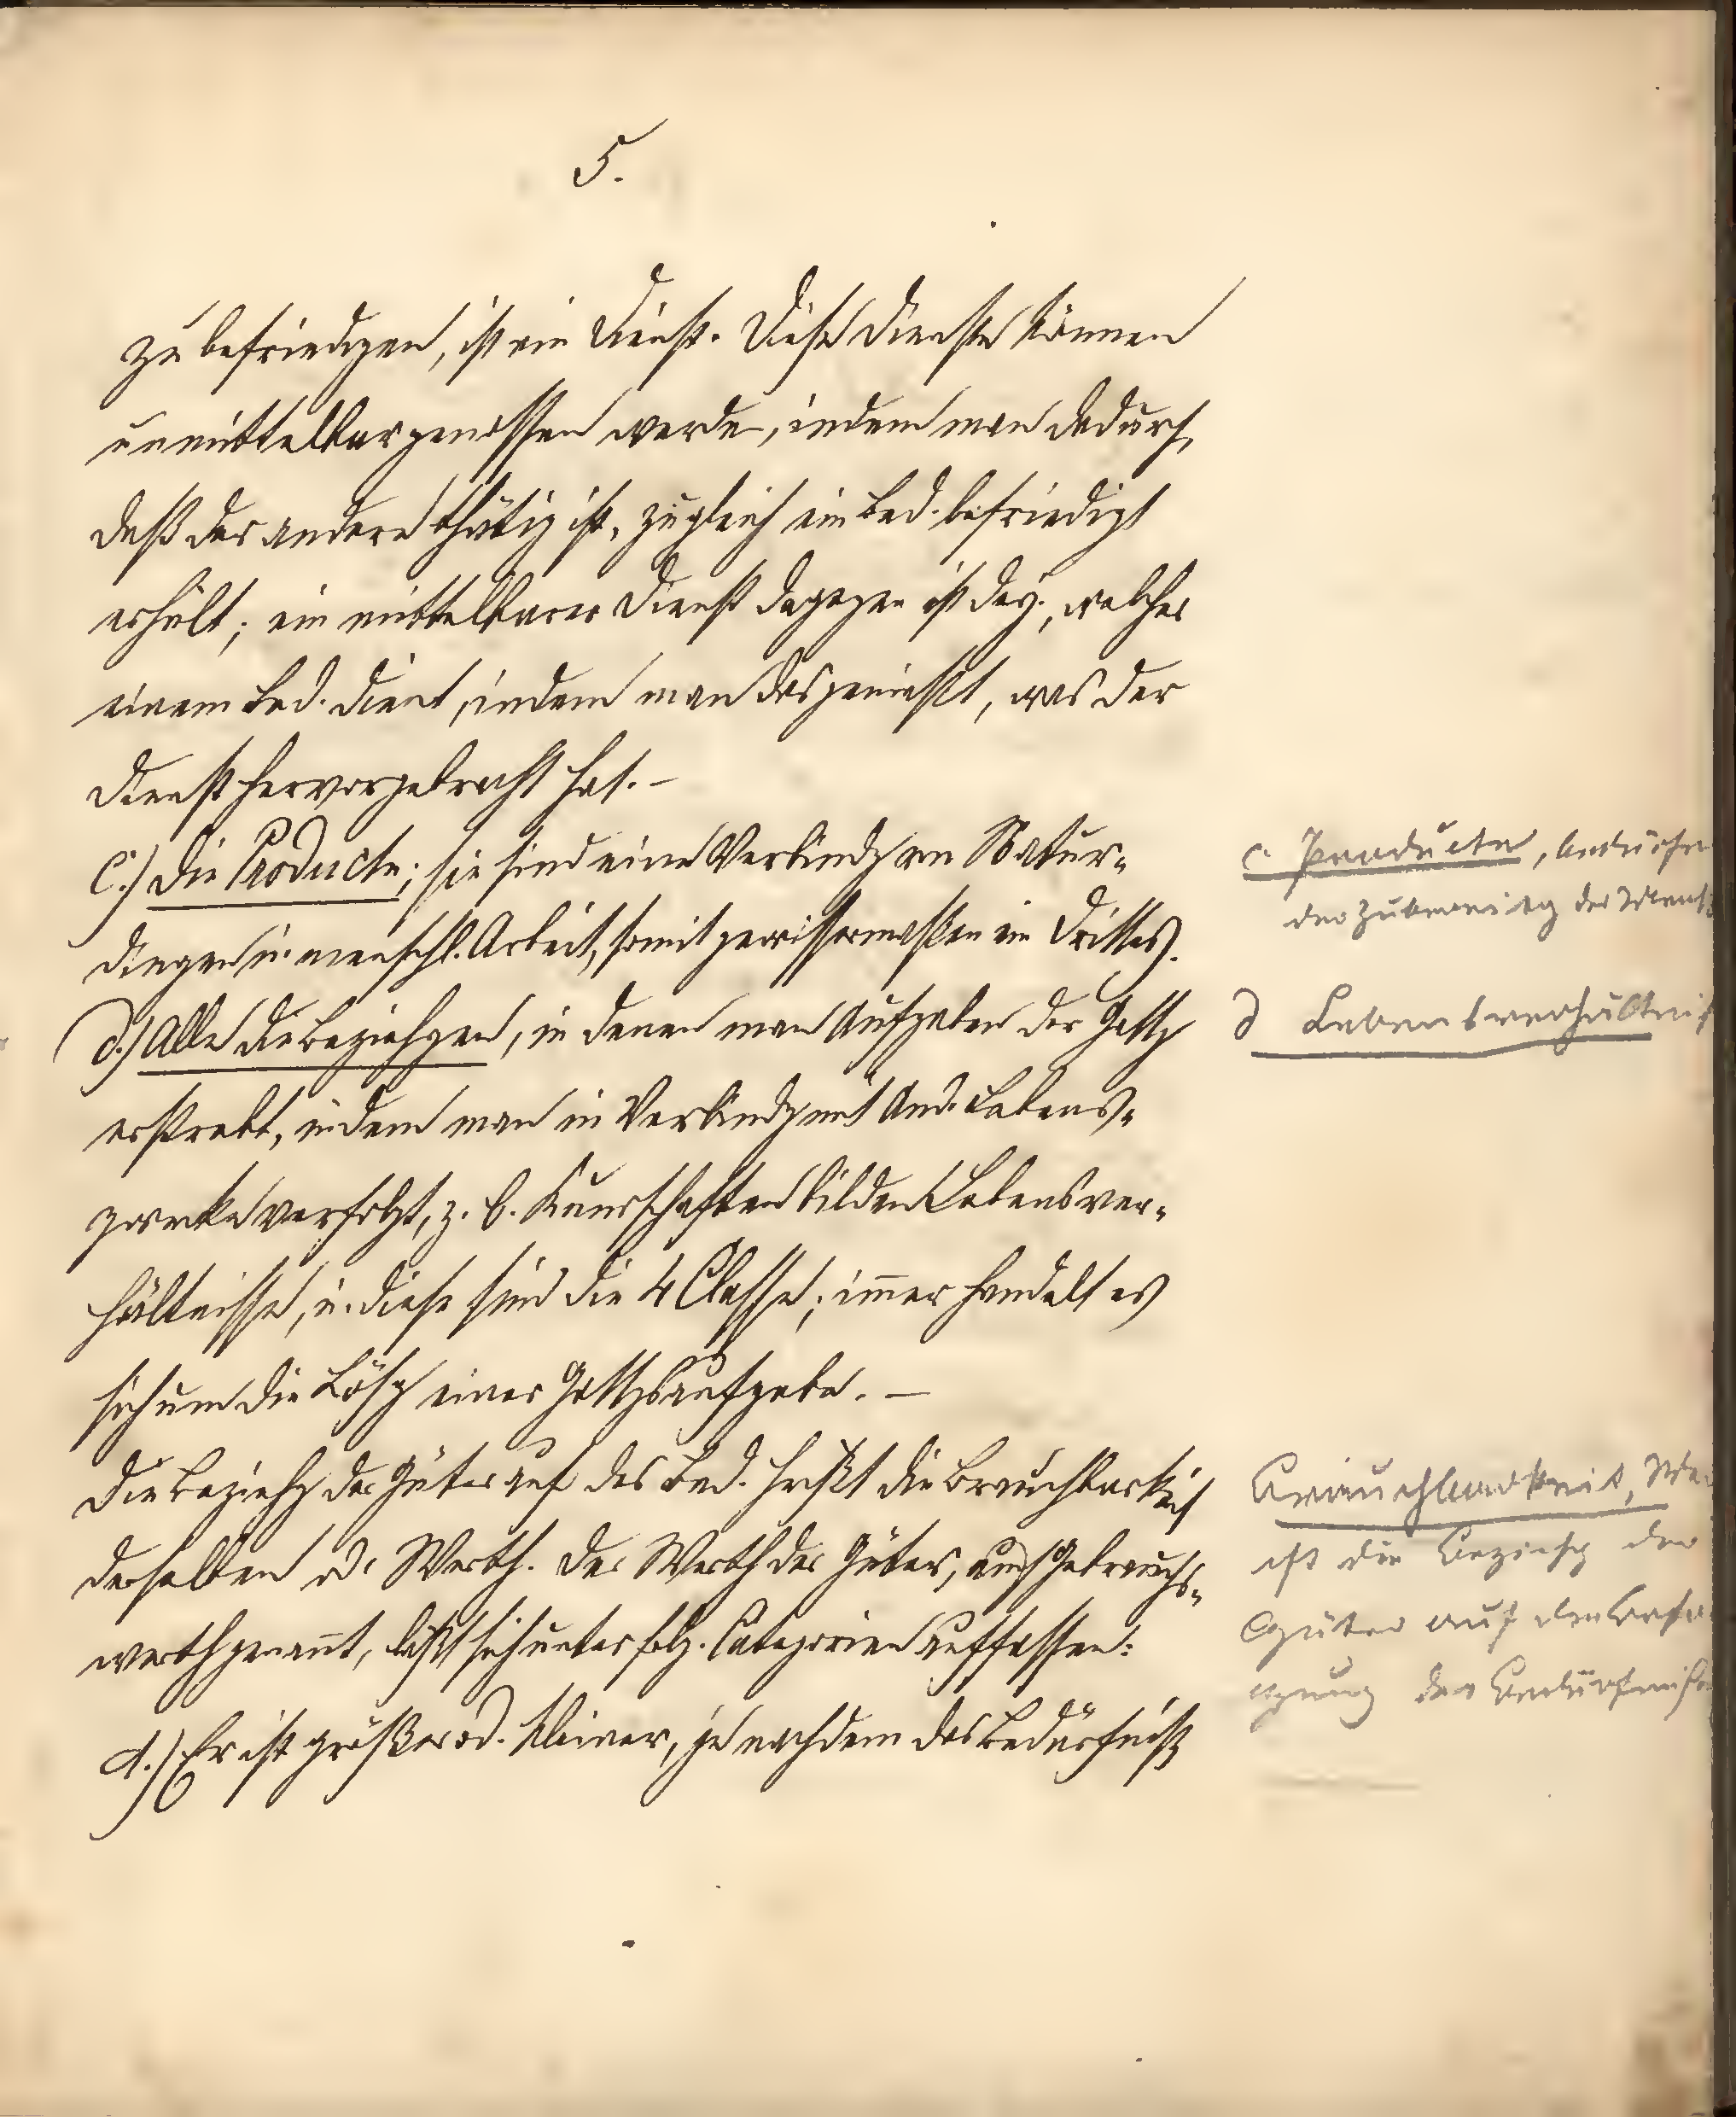 5.
zu befriedigen, ist ein Dienst. Diese Dienste können
unmittelbar genossen werden, indem man dadurch,
daß der andere thätig ist, zugleich ein Bed. befriedigt
erhält; ein mittelbarer Dienst dagegen ist derj., welcher
einem Bed. dient, indem man das genießt, was der
Dienst hervorgebracht hat. –
c.) Die Producte; sie sind eine Verbindg von Natur-
dingen u. menschl. Arbeit, somit gewissermaßen ein Drittes.
d.) Alle die Beziehgen, in denen man Aufgaben der Gattg
erstrebt, indem man in Verbindg mit And. Lebens-
zwecke verfolgt, z. B. Kundschaften bilden Lebensver-
hältnisse, u. diese sind die 4 Classe; immer handelt es
sich um die Lösg einer Gattgsaufgabe. –
Die Beziehg der Güter auf das Bed. heißt die Brauchbarkeit
derselben od. Werth. Der Werth der Güter, auch Gebrauchs-
werth genannt, läßt sich unter folg. Categorien auffassen:
1.) Er ist größer od. kleiner, je nachdem das Bedürfniß
c Producte, bedürfen
der Zubereitg der Mensch
d Lebensverhältniss
Brauchbarkeit, We
ist die Beziehg der
Güter auf den Befr
igung der Bedürfnisse